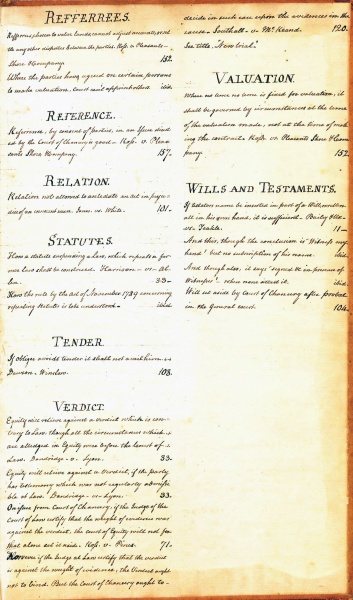 REFFERREES.
Refferrees chosen to value lands, cannot adjourn accounts, or settle any other disputes between the parties. Ross v. Pleasants -
Shore & Company. 152.
Where the parties have agreed on certain persons
to make valuation, Court can't appoint others ibid.
REFERENCE.
Reference, by consent of parties, in an Issue directed
by the Court of Chancery is good - Ross. v. Pleasants
Shore & Company. 157.
RELATION.
Relation not allowed to antedate an act in prejudice
of an innocent man. Jones vs. White. 101.
STATUTES.
How a statute suspending a Law, which repeals a former
Law shall be construed. Harrison vs. Allen.
33
How the rule by the act of November 1789 concerning
repealing statutes is to be understood - ibid.
TENDER.
If obligee avoids tender it shall not avail him.
Dawson. Winslow. 108.
VERDICT.
Equity will relieve against a verdict which is contrary
to Law, though all the circumstances which
are alledged in Equity were before the Court of
Law. Dandridge v. Lyon. 33.
Equity will relieve against a Verdict, if the party
has testimony which was not regularly admissible
at Law. Dandridge vs. Lyon. 33.
On Issue from Court of Chancery, if the Judge of the
Court of Law certify that the weight of evidence was
against the verdict, the court of Equity will not for
that alone set it aside. Ross. v. Pines. 71.
However if the Judge at Law certify that the verdict
is against the weight of evidence, the Verdict ought
not to bind. But the Court of Chancery ought to
decide in such case upon the evidences in the
cause. Southall v. McKeand. 120.
See title "New trial."
VALUATION.
When no time is fixed for valuation, it
shall be governed by circumstances at the time
of the valuation made, not at the time of making
the contract. Ross. v. Pleasants Shore & Company.
152.
WILLS AND TESTAMENTS.
If testators name be inserted in part of a Will written
all in his own hand, it is sufficient - Bailey
vs. Teakle. 11
And this, though the conclusion is "Witness my
hand" but no subscription of his name ibid.
And though also, it says "signed &c in presence of
Witnesses" when none attest it. ibid.
Will set aside by Court of Chancery after probat
in the General court. 104.